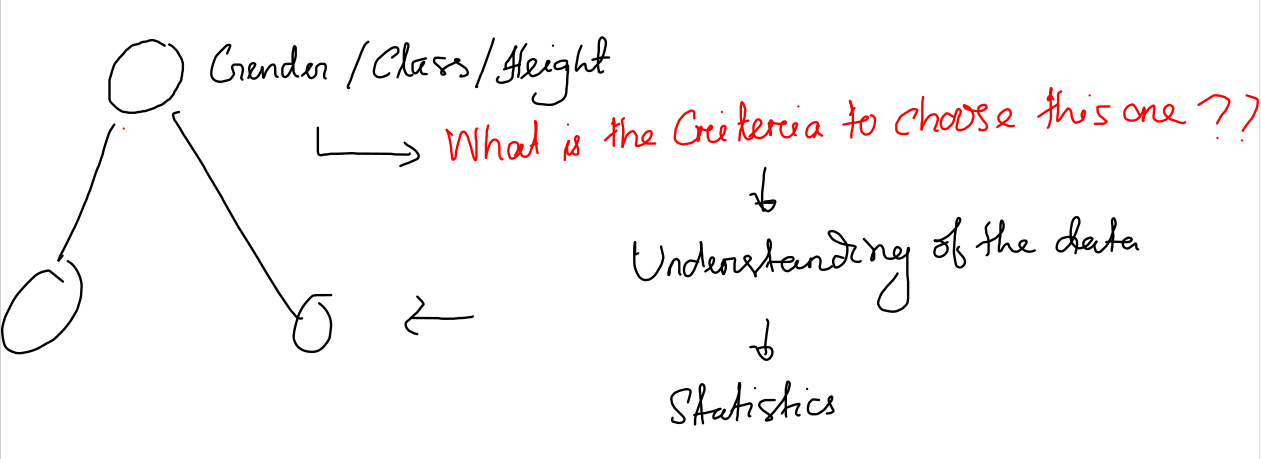 Gender / Class / Height
What is the Criteria to choose this one ??
Understanding of the data
Statistics